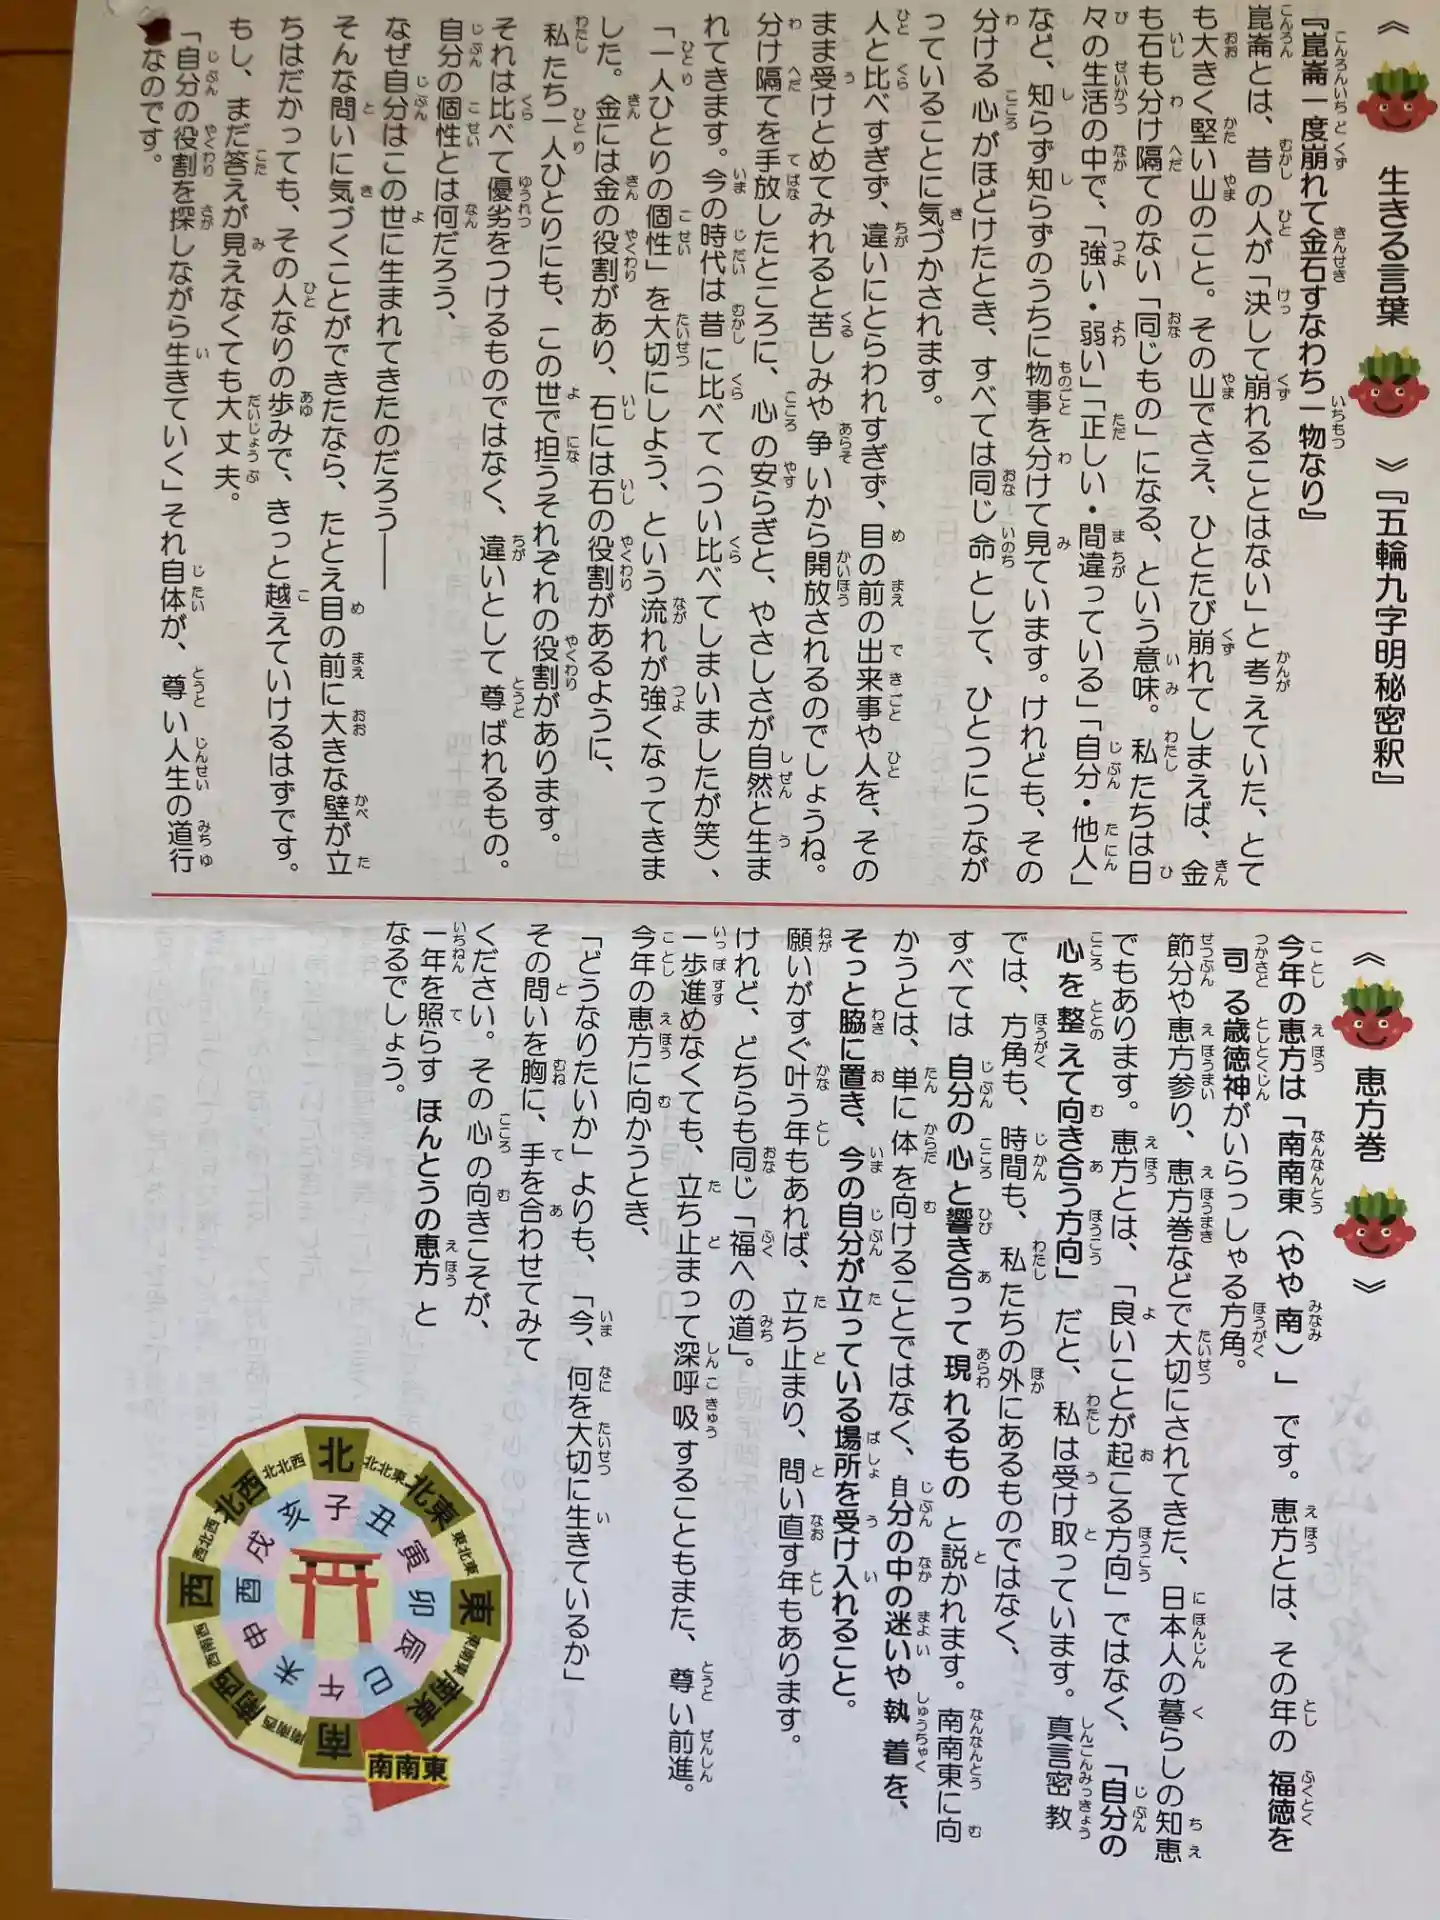 《 生きる言葉 》『五輪九字明秘密釈』
『崑崙一度崩れて金石すなわち一物なり』
崑崙とは、昔の人が「決して崩れることはない」と考えていた、とて
も大きく堅い山のこと。その山でさえ、ひとたび崩れてしまえば、金
も石も分け隔てのない「同じもの」になる、という意味。私たちは日
々の生活の中で、「強い・弱い」「正しい・間違っている」「自分・他人」
など、知らず知らずのうちに物事を分けて見ています。けれども、その
分ける心がほどけたとき、すべては同じ命として、ひとつにつなが
っていることに気づかされます。
人と比べすぎず、違いにとらわれすぎず、目の前の出来事や人を、その
まま受けとめてみれると苦しみや争いから開放されるのでしょうね。
分け隔てを手放したところに、心の安らぎと、やさしさが自然と生ま
れてきます。今の時代は昔に比べて（つい比べてしまいましたが笑）、
「一人ひとりの個性」を大切にしよう、という流れが強くなってきま
した。金には金の役割があり、石には石の役割があるように、
私たち一人ひとりにも、この世で担うそれぞれの役割があります。
それは比べて優劣をつけるものではなく、違いとして尊ばれるもの。
自分の個性とは何だろう、
なぜ自分はこの世に生まれてきたのだろう――
そんな問いに気づくことができたなら、たとえ目の前に大きな壁が立
ちはだかっても、その人なりの歩みで、きっと越えていけるはずです。
もし、まだ答えが見えなくても大丈夫。
「自分の役割を探しながら生きていく」それ自体が、尊い人生の道行
なのです。
《 恵方巻 》
今年の恵方は「南南東（やや南）」です。恵方とは、その年の福徳を
司る歳徳神がいらっしゃる方角。
節分や恵方参り、恵方巻などで大切にされてきた、日本人の暮らしの知恵
でもあります。恵方とは、「良いことが起こる方向」ではなく、「自分の
心を整えて向き合う方向」だと、私は受け取っています。真言密教
では、方角も、時間も、私たちの外にあるものではなく、
すべては自分の心と響き合って現れるものと説かれます。南南東に向
かうとは、単に体を向けることではなく、自分の中の迷いや執着を、
そっと脇に置き、今の自分が立っている場所を受け入れること。
願いがすぐ叶う年もあれば、立ち止まり、問い直す年もあります。
けれど、どちらも同じ「福への道」。
一歩進めなくても、立ち止まって深呼吸することもまた、尊い前進。
今年の恵方に向かうとき、
「どうなりたいか」よりも、「今、何を大切に生きているか」
その問いを胸に、手を合わせてみて
ください。その心の向きこそが、
一年を照らすほんとうの恵方と
なるでしょう。
北
北北東
北東
東北東
東
東南東
南東
南南東
南
南南西
南西
西南西
西
西北西
北西
北北西
子
丑
寅
卯
辰
巳
午
未
申
酉
戌
亥